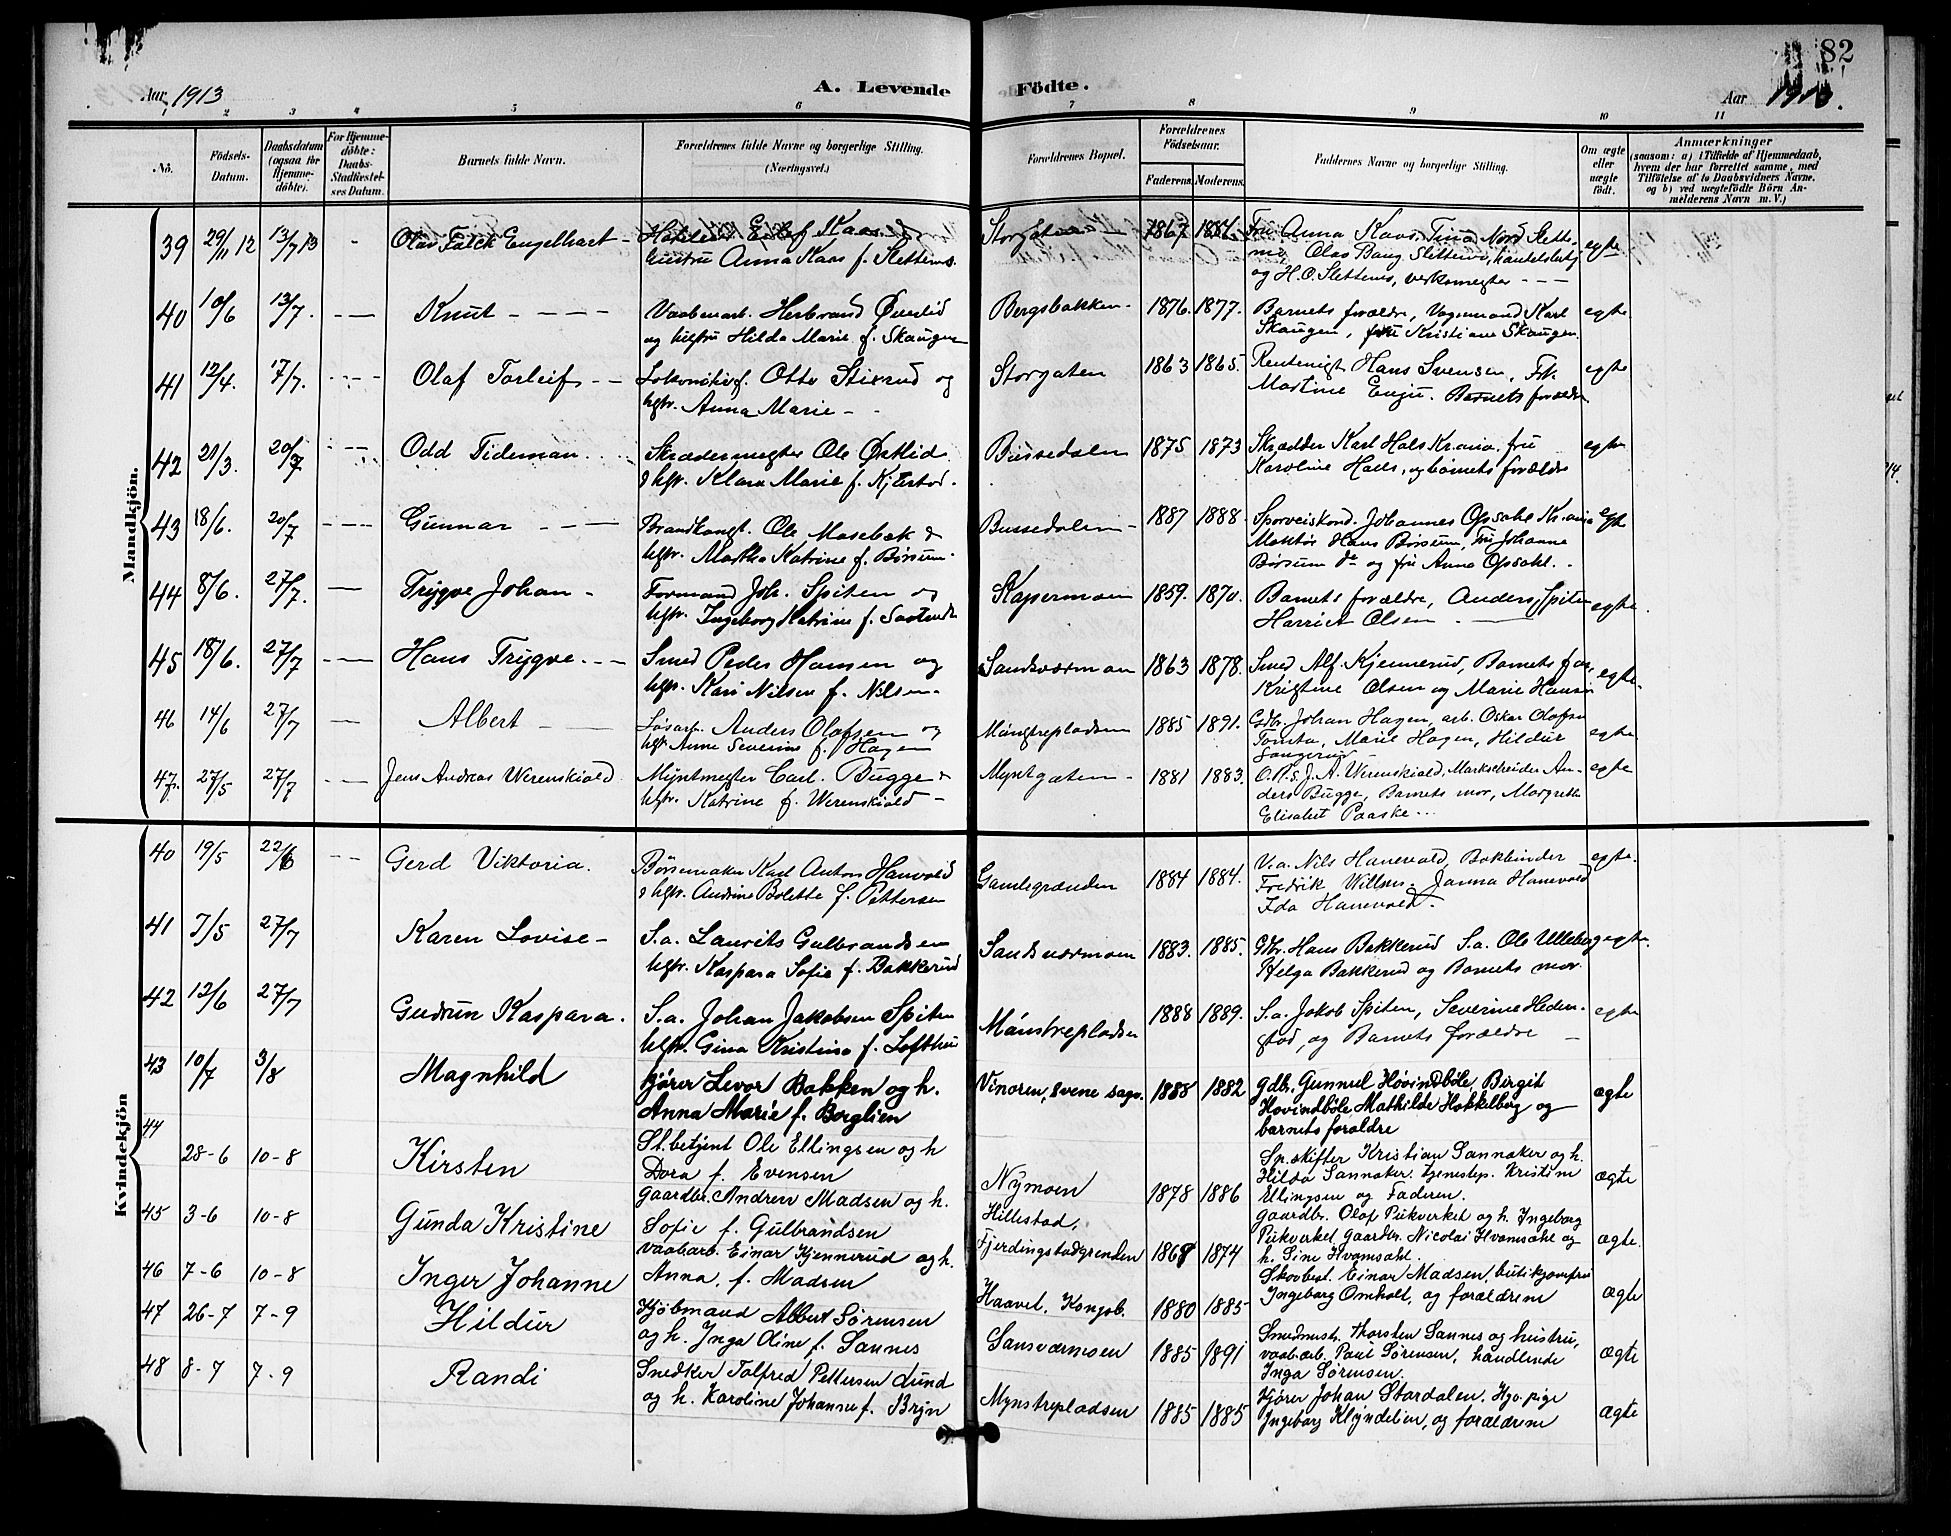 82
Aar 1913
A. Levende Fødte.
Aar 1913.
1 2 3 4 5 6 7 8 9 10 11
No.
Fødsels-Datum.
Daabsdatum (ogsaa for Hjemme-døbte).
For Hjemme-døbte: Daabs-Stadfæstel-ses Datum.
Barnets fulde Navn.
Forældrenes fulde Navne og borgerlige Stilling. (Næringsvei.)
Forældrenes Bopæl.
Forældrenes Fødselsaar.
Faderens. Moderens.
Faddernes Navne og borgerlige Stilling.
Om ægte eller uægte født.
Anmærkninger
(saasom: a) i Tilfælde af Hjemmedaab, hvem der har forrettet samme, med Tilføielse af to Daabsvidners Navne, og b) ved uægtefødte Børn Anmelderens Navn m. V.)
Mandkjøn.
39 29/11 12 13/7 13 - Olav Falck Engelhart -
hustru Anna Kaas f. Slettemo.
Storgaten 1867 1886 Fru Anna Kaas, Tina
egte
og H.O. Slettemo, verksmegter - - -
40 10/6 13/7. - Knut - - - -
Vaabenarb. Herbrand Øverlid
og hustru Hilda Marie f. Skaugen
Bergsbakken - 1876. 1877. Barnets forældre, Vognmand Karl
Skaugen, fru Kristiane Skaugen.
egte
41 12/4. 17/7. - - - Olaf Torleif - -
Lokomotivf. Otto Stixrud og
hstr. Anna Marie -
Storgaten 1863 1865. Hans Svensen, Frk
Martine Barnets forældre
egte
42 21/3. 20/7 - - Odd Tideman
Skrædermegter Ole Østlid
& hstr. Klara Marie f. Kjærstad.
Bussedalen 1875 1873 Skrædder Karl Hals Krania, fru
Karoline Hals, og barnets forældre
egte
43 18/6. 20/7 - - - Gunnar - - -
Brandkonst. Ole Mosebæk &
hstr. Martha Katrine f. Børsum.
Bussedalen - 1887 1888. Sporveiskond. Johannes Opsahl Krania
Hans Børsum, fru Johanne
Børsum do og fru Anna Opsahl.
egte
44 8/6. 27/7. - Trygve Johan -
Formand Joh. Spiten og
hstr. Ingeborg Katrine f.
1859. 1870. Barnets forældre, Anders Spiten
Harriet Olsen -
egte.
45 18/6. 27/7 - Hans Trygve - - -
Smed Peder Hansen og
hstr. Kari Nilsen f. Nilsen -
Sandsværmoen 1863 1878. Smed Alf. Kjennerud, Barnets far,
Kristine Olsen og Marie Hansen
egte.
46 14/6 27/7 - Albert -
Løsarb. Anders Olafsen og
hstr. Anne Severine f. Hagen
1885 1891. Gdbr. Johan Hagen, arb. Oskar Olafsen
Tomta, Marie Hagen, Hildur
egte
47. 27/5 27/7 - Jens Andreas Werenskiold
Myntmegter Carl. Bugge &
hstr. Katrine f. Werenskiold -
Myntgaten - 1881 1883. J. A. Werenskiold, Markscheider An-
ders Bugge, Barnets mor, Margrethe
Elisabet Paaske...
egte
Kvindekjøn
40 19/5 22/6 - - Gerd Viktoria.
Børsemaker Karl Anton Hanevold
& hstr. Andrine Bolette f. Pettersen
Gamlegrænden 1884 1884. V.a. Nils Hanevold, Bokbinder
Fredrik Janna Hanevold
Ida Hanevold.
egte.
41 7/5 27/7 Karen Lovise -
S.a. Laurits Gulbrandsen
hstr. Kaspara Sofie f. Bakkerud
Sandsværmoen 1883. 1885. Gdbr. Hans Bakkerud S.a. Ole Ulleberg
Helga Bakkerud og Barnets mor.
egte.
42 12/6 27/7 Gudrun Kaspara.
S.a. Johan Jakobsen Spiten
hstr. Gina Kristina f. Lofthus
1888 1889. S.a. Jakob Spiten, Severine Heden-
stad, og Barnets forældre -
egte
43 10/7 3/8 Magnhild
kjører Levor Bakken og h.
Anna Marie f. Berglien
Vinoren, Svene sogn. 1888 1882 gdb. Gunnul Hovindbøle, Birgit
Hovindbøle Mathilde Hokkelberg og
barnets foraldre
ægte
44 28-6 10-8 Kirsten
St.betjent Ole Ellingsen og h
Dora f. Evensen
Nymoen 1878 1886 Sp.skifter Kristian Sannaker og h.
Hilda Sannaker. tjenestep. Kristine
Ellingsen og Faderen.
ægte
45 3-6 10-8 Gunda Kristine
Gaardbr. Andreas Madsen og h.
Sofie f. Gulbrandsen
Hillestad,
Fjerdingstadgrenden 1868 1874 gaardbr. Olaf Pukverket og h. Ingeborg
Pukverket gaardbr. Nicolai Hvamsahl og
h. Sine Hvamsahl.
ægte.
46 7-6 10-8 Inger Johanne
vaabarb. Einar Kjennerud og h.
Anna, f. Madsen
Haavet, Kongsb. 1880 1885 Skovbest. Einar Madsen, butikjomfru
Ingeborg Omholt, og forældrene
ægte
47 26-7 7-9 Hildur
Kjøbmand Albert Sørensen
og h. Inga Oline f. Sannes
Sansværmoen 1885 1891 Smedmstr. Thorsten Sannes og hustru,
vaabarb. Paul Sørensen, handlende
Inga Sørensen.
ægte
48 8-7 7-9 Randi
Snedker Tolfred Pettersen Lund
og h. Karoline Johanne f. Bryn
Mynstrepladsen 1885 1885 Kjører Johan Stordalen. Hjo. pige
Ingeborg Klyndelien, og forældrene
ægte